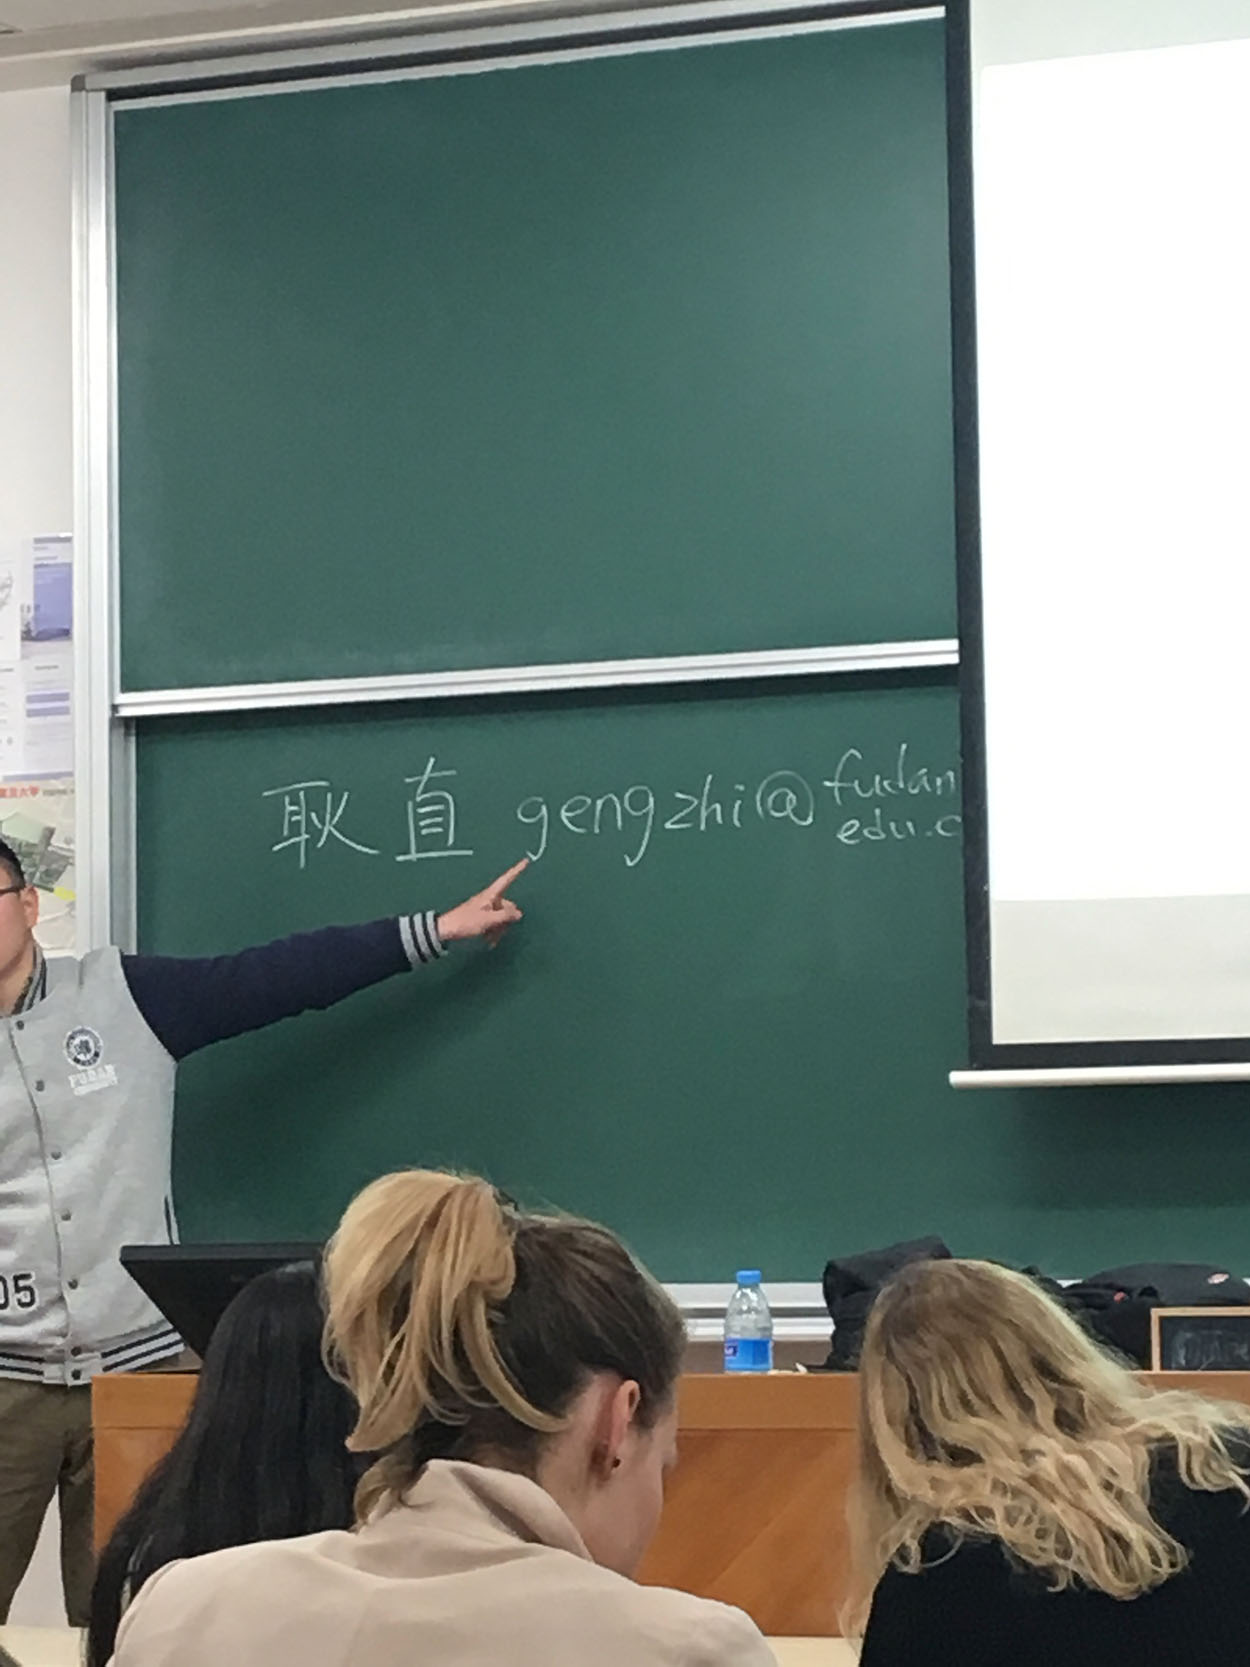 耿直 gengzhi@fudan
edu.c
FUDAN
05